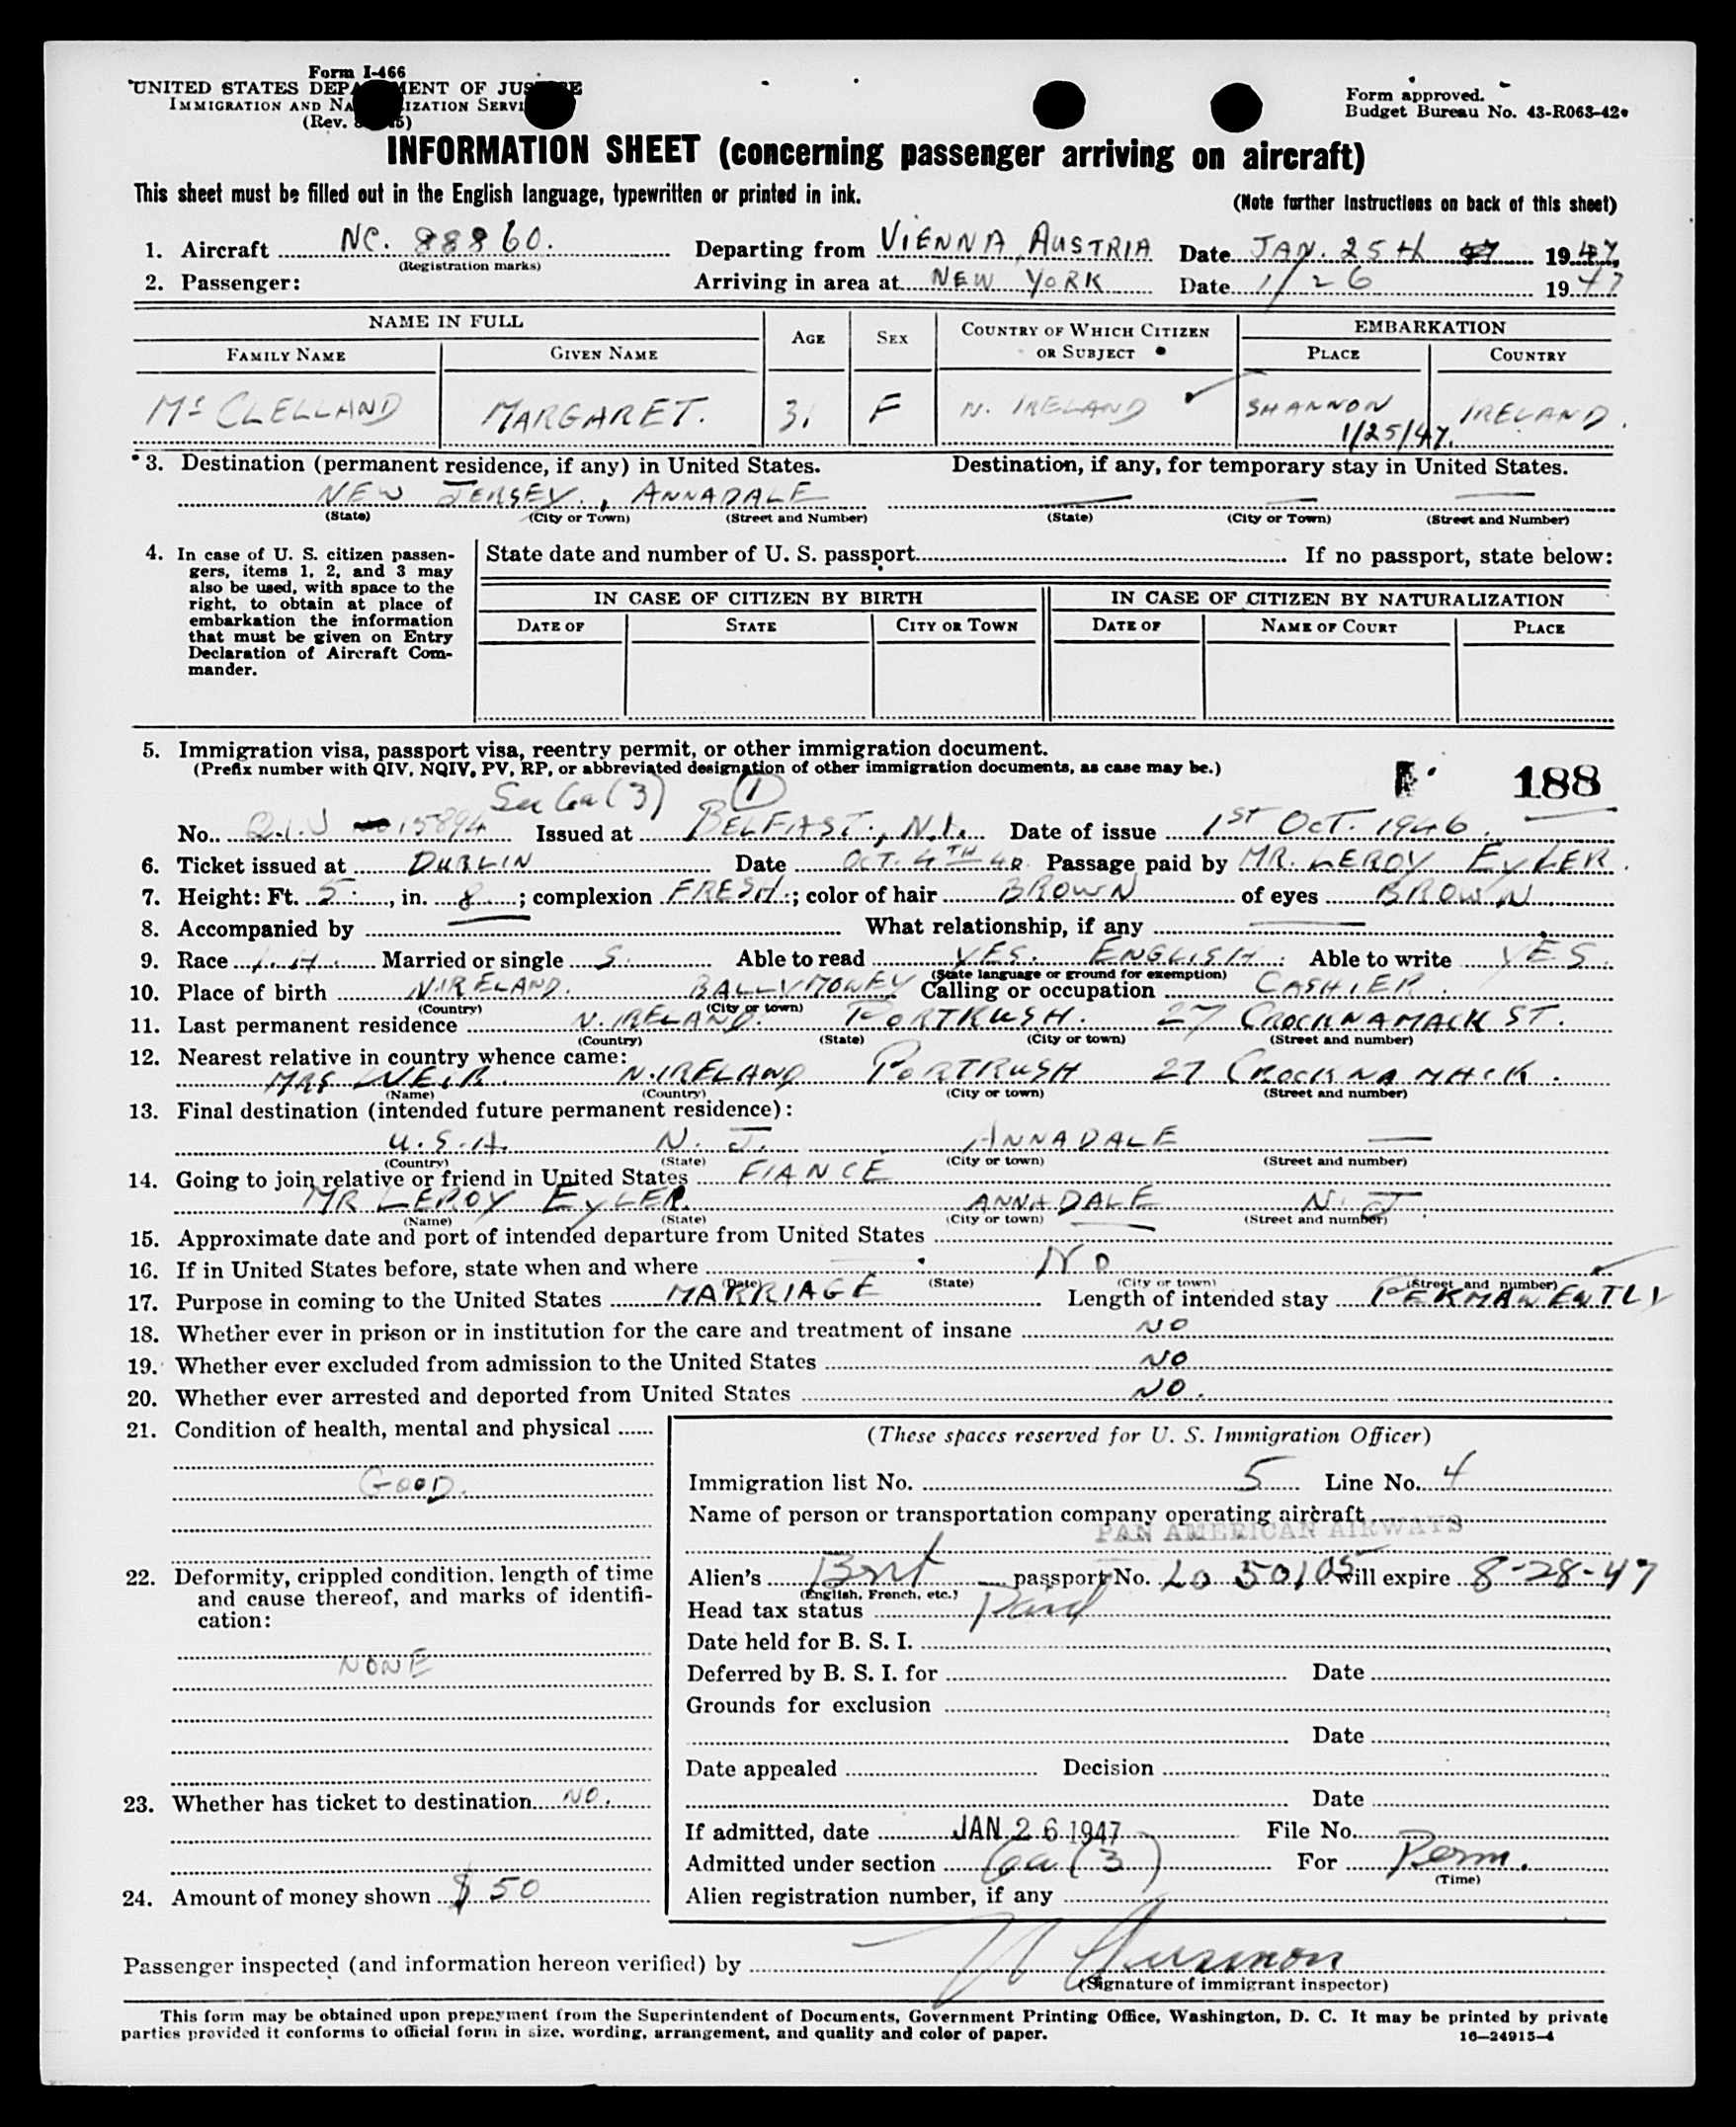 Form I-466
UNITED STATES DEPARTMENT OF JUSTICE
IMMIGRATION AND NATURALIZATION SERVICE
(Rev.
Form approved.
Budget Bureau No. 43-R063-42
INFORMATION SHEET (concerning passenger arriving on aircraft)
This sheet must be filled out in the English language, typewritten or printed in ink.
(Note further instructions on back of this sheet)
1. Aircraft NC. 88860. Departing from VIENNA, AUSTRIA Date JAN. 25TH 1947
(Registration marks)
2. Passenger: Arriving in area at NEW YORK Date 1/26 1947
NAME IN FULL AGE SEX COUNTRY OF WHICH CITIZEN OR SUBJECT EMBARKATION
FAMILY NAME GIVEN NAME PLACE COUNTRY
McCLELLAND MARGARET. 31 F N. IRELAND SHANNON IRELAND.
1/25/47.
3. Destination (permanent residence, if any) in United States. Destination, if any, for temporary stay in United States.
NEW JERSEY., ANNADALE
(State) (City or Town) (Street and Number) (State) (City or Town) (Street and Number)
4. In case of U. S. citizen passen-
gers, items 1, 2, and 3 may
also be used, with space to the
right, to obtain at place of
embarkation the information
that must be given on Entry
Declaration of Aircraft Com-
mander.
State date and number of U. S. passport If no passport, state below:
IN CASE OF CITIZEN BY BIRTH IN CASE OF CITIZEN BY NATURALIZATION
DATE OF STATE CITY OR TOWN DATE OF NAME OF COURT PLACE
5. Immigration visa, passport visa, reentry permit, or other immigration document.
(Prefix number with QIV, NQIV, PV, RP, or abbreviated designation of other immigration documents, as case may be.)
188
Sec 6a(3) 1
No. Q.I.V 15894 Issued at BELFAST., N.I. Date of issue 1ST OCT. 1946.
6. Ticket issued at DUBLIN Date OCT. 4TH 46 Passage paid by MR. LEROY EYLER.
7. Height: Ft. 5, in. 8; complexion FRESH.; color of hair BROWN of eyes BROWN.
8. Accompanied by What relationship, if any
9. Race Married or single S. Able to read YES. ENGLISH. Able to write YES.
(State language or ground for exemption)
10. Place of birth N.IRELAND. BALLYMONEY Calling or occupation CASHIER.
(Country) (City or town)
11. Last permanent residence N. IRELAND. PORTRUSH. 27 CROCKNAMACK ST.
(Country) (State) (City or town) (Street and number)
12. Nearest relative in country whence came:
MRS WEIR. N.IRELAND PORTRUSH 27 CROCKNAMACK.
(Name) (Country) (City or town) (Street and number)
13. Final destination (intended future permanent residence):
U.S.A. N. J. ANNADALE
(Country) (State) (City or town) (Street and number)
14. Going to join relative or friend in United States FIANCÉ
MR LEROY EYLER. ANNADALE N. J.
(Name) (State) (City or town) (Street and number)
15. Approximate date and port of intended departure from United States
16. If in United States before, state when and where NO
(Date) (State) (City or town) (Street and number)
17. Purpose in coming to the United States MARRIAGE Length of intended stay PERMANENTLY
18. Whether ever in prison or in institution for the care and treatment of insane NO
19. Whether ever excluded from admission to the United States NO
20. Whether ever arrested and deported from United States NO.
21. Condition of health, mental and physical
GOOD.
22. Deformity, crippled condition, length of time
and cause thereof, and marks of identifi-
cation:
NONE
23. Whether has ticket to destination NO.
24. Amount of money shown $50
(These spaces reserved for U. S. Immigration Officer)
Immigration list No. 5 Line No. 4
Name of person or transportation company operating aircraft
PAN AMERICAN AIRWAYS
Alien's Brit passport No. Lo 50105 will expire 8-28-47
(English, French, etc.)
Head tax status Paid
Date held for B. S. I.
Deferred by B. S. I. for Date
Grounds for exclusion
Date
Date appealed Decision
Date
If admitted, date JAN 26 1947 File No.
Admitted under section 6a(3) For Perm.
(Time)
Alien registration number, if any
Passenger inspected (and information hereon verified) by
(Signature of immigrant inspector)
This form may be obtained upon prepayment from the Superintendent of Documents, Government Printing Office, Washington, D. C. It may be printed by private
parties provided it conforms to official form in size, wording, arrangement, and quality and color of paper.
16—24915-4